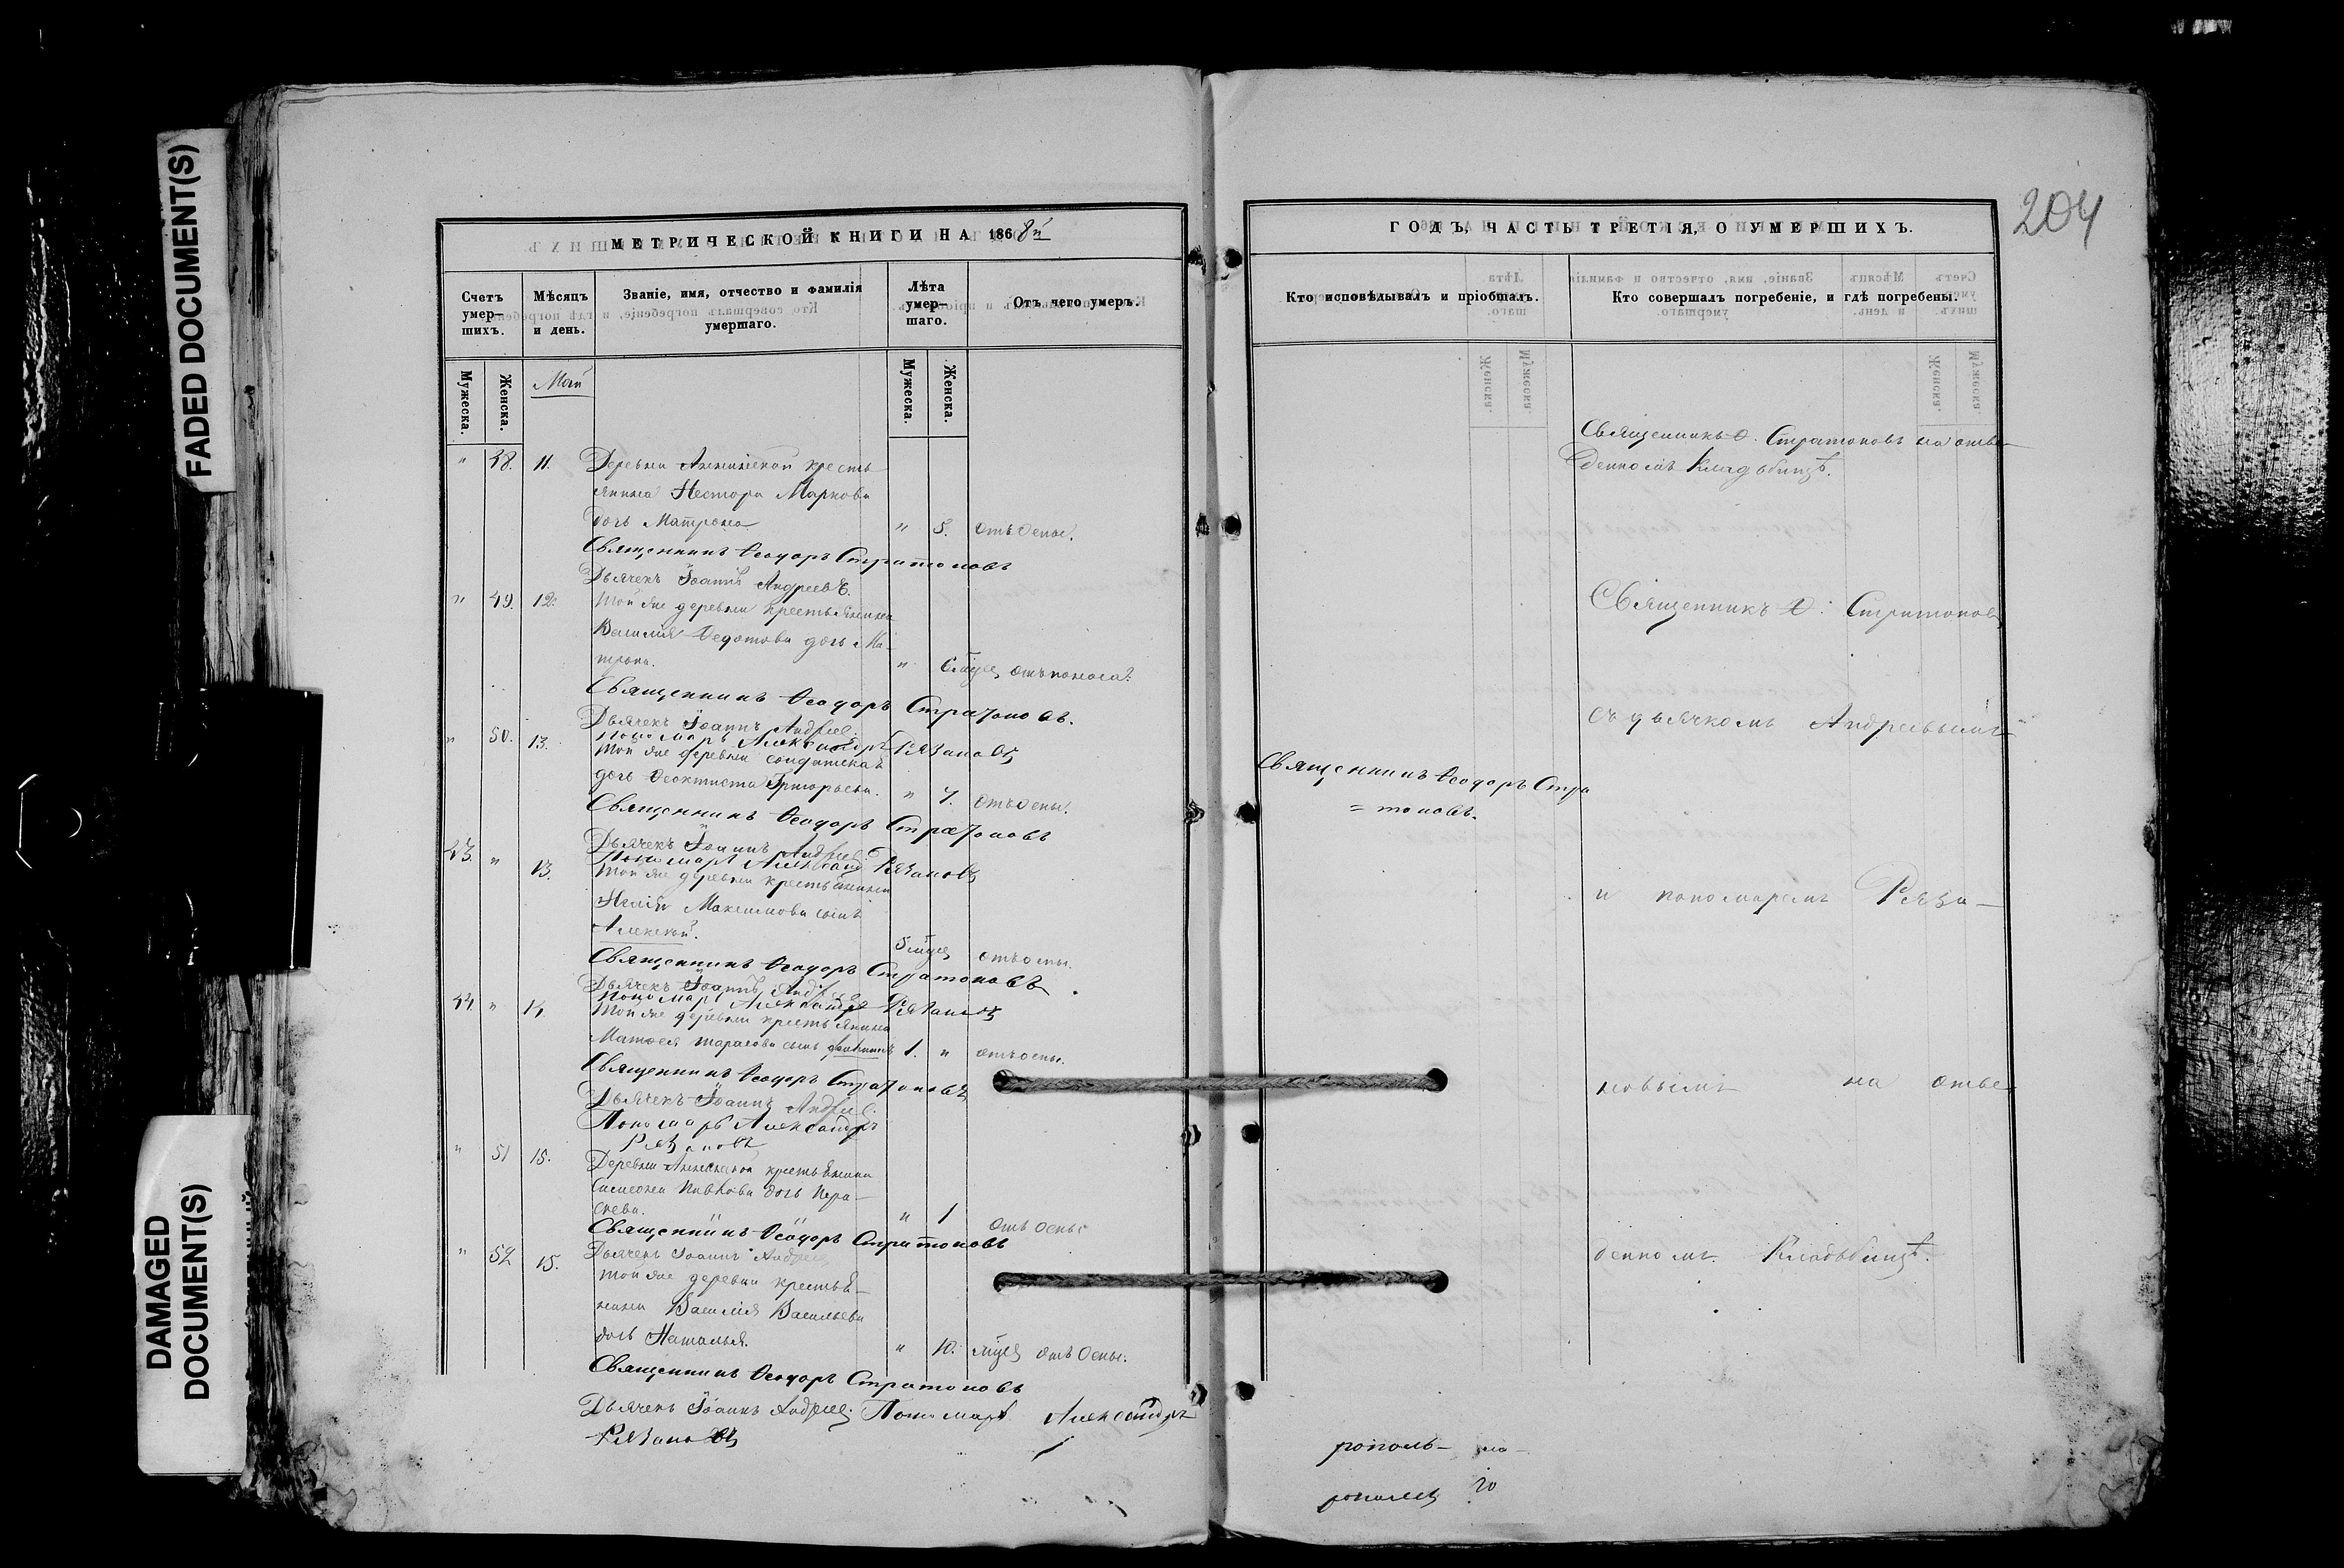 FADED DOCUMENT(S)
DAMAGED
DOCUMENT(S)
МЕТРИЧЕСКОЙ КНИГИ НА 1868й
Счетъ умер-шихъ.
Мѣсяцъ и день.
Званіе, имя, отчество и фамилія умершаго.
Лѣта умер-шаго.
Отъ чего умеръ.
Мужеска.
Женска.
Май
Мужеска.
Женска.
" 48. 11. Деревни крестья
янина Нестора Маркова
дочь Матрона " 5. отъ оспы.
Священникъ Ѳеодоръ Стратоновъ
Дьячекъ Іоаннъ Андреевъ.
" 49. 12. Той же деревни крестьянина
Василія Ѳедотова дочь Ма-
трона. " 6 мѣсяц отъ поноса.
Священникъ Ѳеодоръ Стратоновъ.
Дьячекъ Іоаннъ Андреев.
Пономарь Александръ Рязановъ
" 50. 13. Той же деревни солдатская
дочь Ѳеоктиста Григорьева. " отъ оспы.
Священникъ Ѳеодоръ Стратоновъ
Дьячекъ Іоаннъ Андреев.
Пономарь Александ Рязановъ
43. " 13. Той же деревни крестьянина
Максимова сынъ
Алексѣй. 5 мѣсяц отъ оспы.
Священникъ Ѳеодоръ Стратоновъ
Дьячекъ Іоаннъ Андрее
Пономарь Александръ Рязановъ
44. " 14. Той же деревни крестьянина
Матвея Тарасова сынъ 1. " отъ оспы.
Священникъ Ѳеодоръ Стратоновъ
Дьячекъ Іоаннъ Андреев.
Пономарь Александръ
Рязановъ
" 51 15. Деревни крестьянина
Симеона дочь Пра-
скева. " 1 отъ оспы
Священникъ Ѳеодоръ Стратоновъ
Дьячекъ Іоаннъ Андрее
" 52 15. Той же деревни крестья-
нина Василія Васильева
дочь Наталья. " 10. мѣсяц отъ оспы.
Священникъ Ѳеодоръ Стратоновъ
Дьячекъ Іоаннъ Андреев. Пономарь Александръ
Рязановъ
ГОДЪ, ЧАСТЬ ТРЕТІЯ, О УМЕРШИХЪ.
204
Кто исповѣдывалъ и пріобщалъ.
Кто совершалъ погребеніе, и гдѣ погребены.
Священникъ Ѳ. Стратоновъ на отве-
денномъ кладьбищѣ.
Священникъ Ѳ. Стратоновъ
съ дьячкомъ Андреевымъ
Священникъ Ѳеодоръ Стра
= тоновъ.
и пономаремъ Ряза-
новымъ на отве-
денномъ Кладьбищѣ.